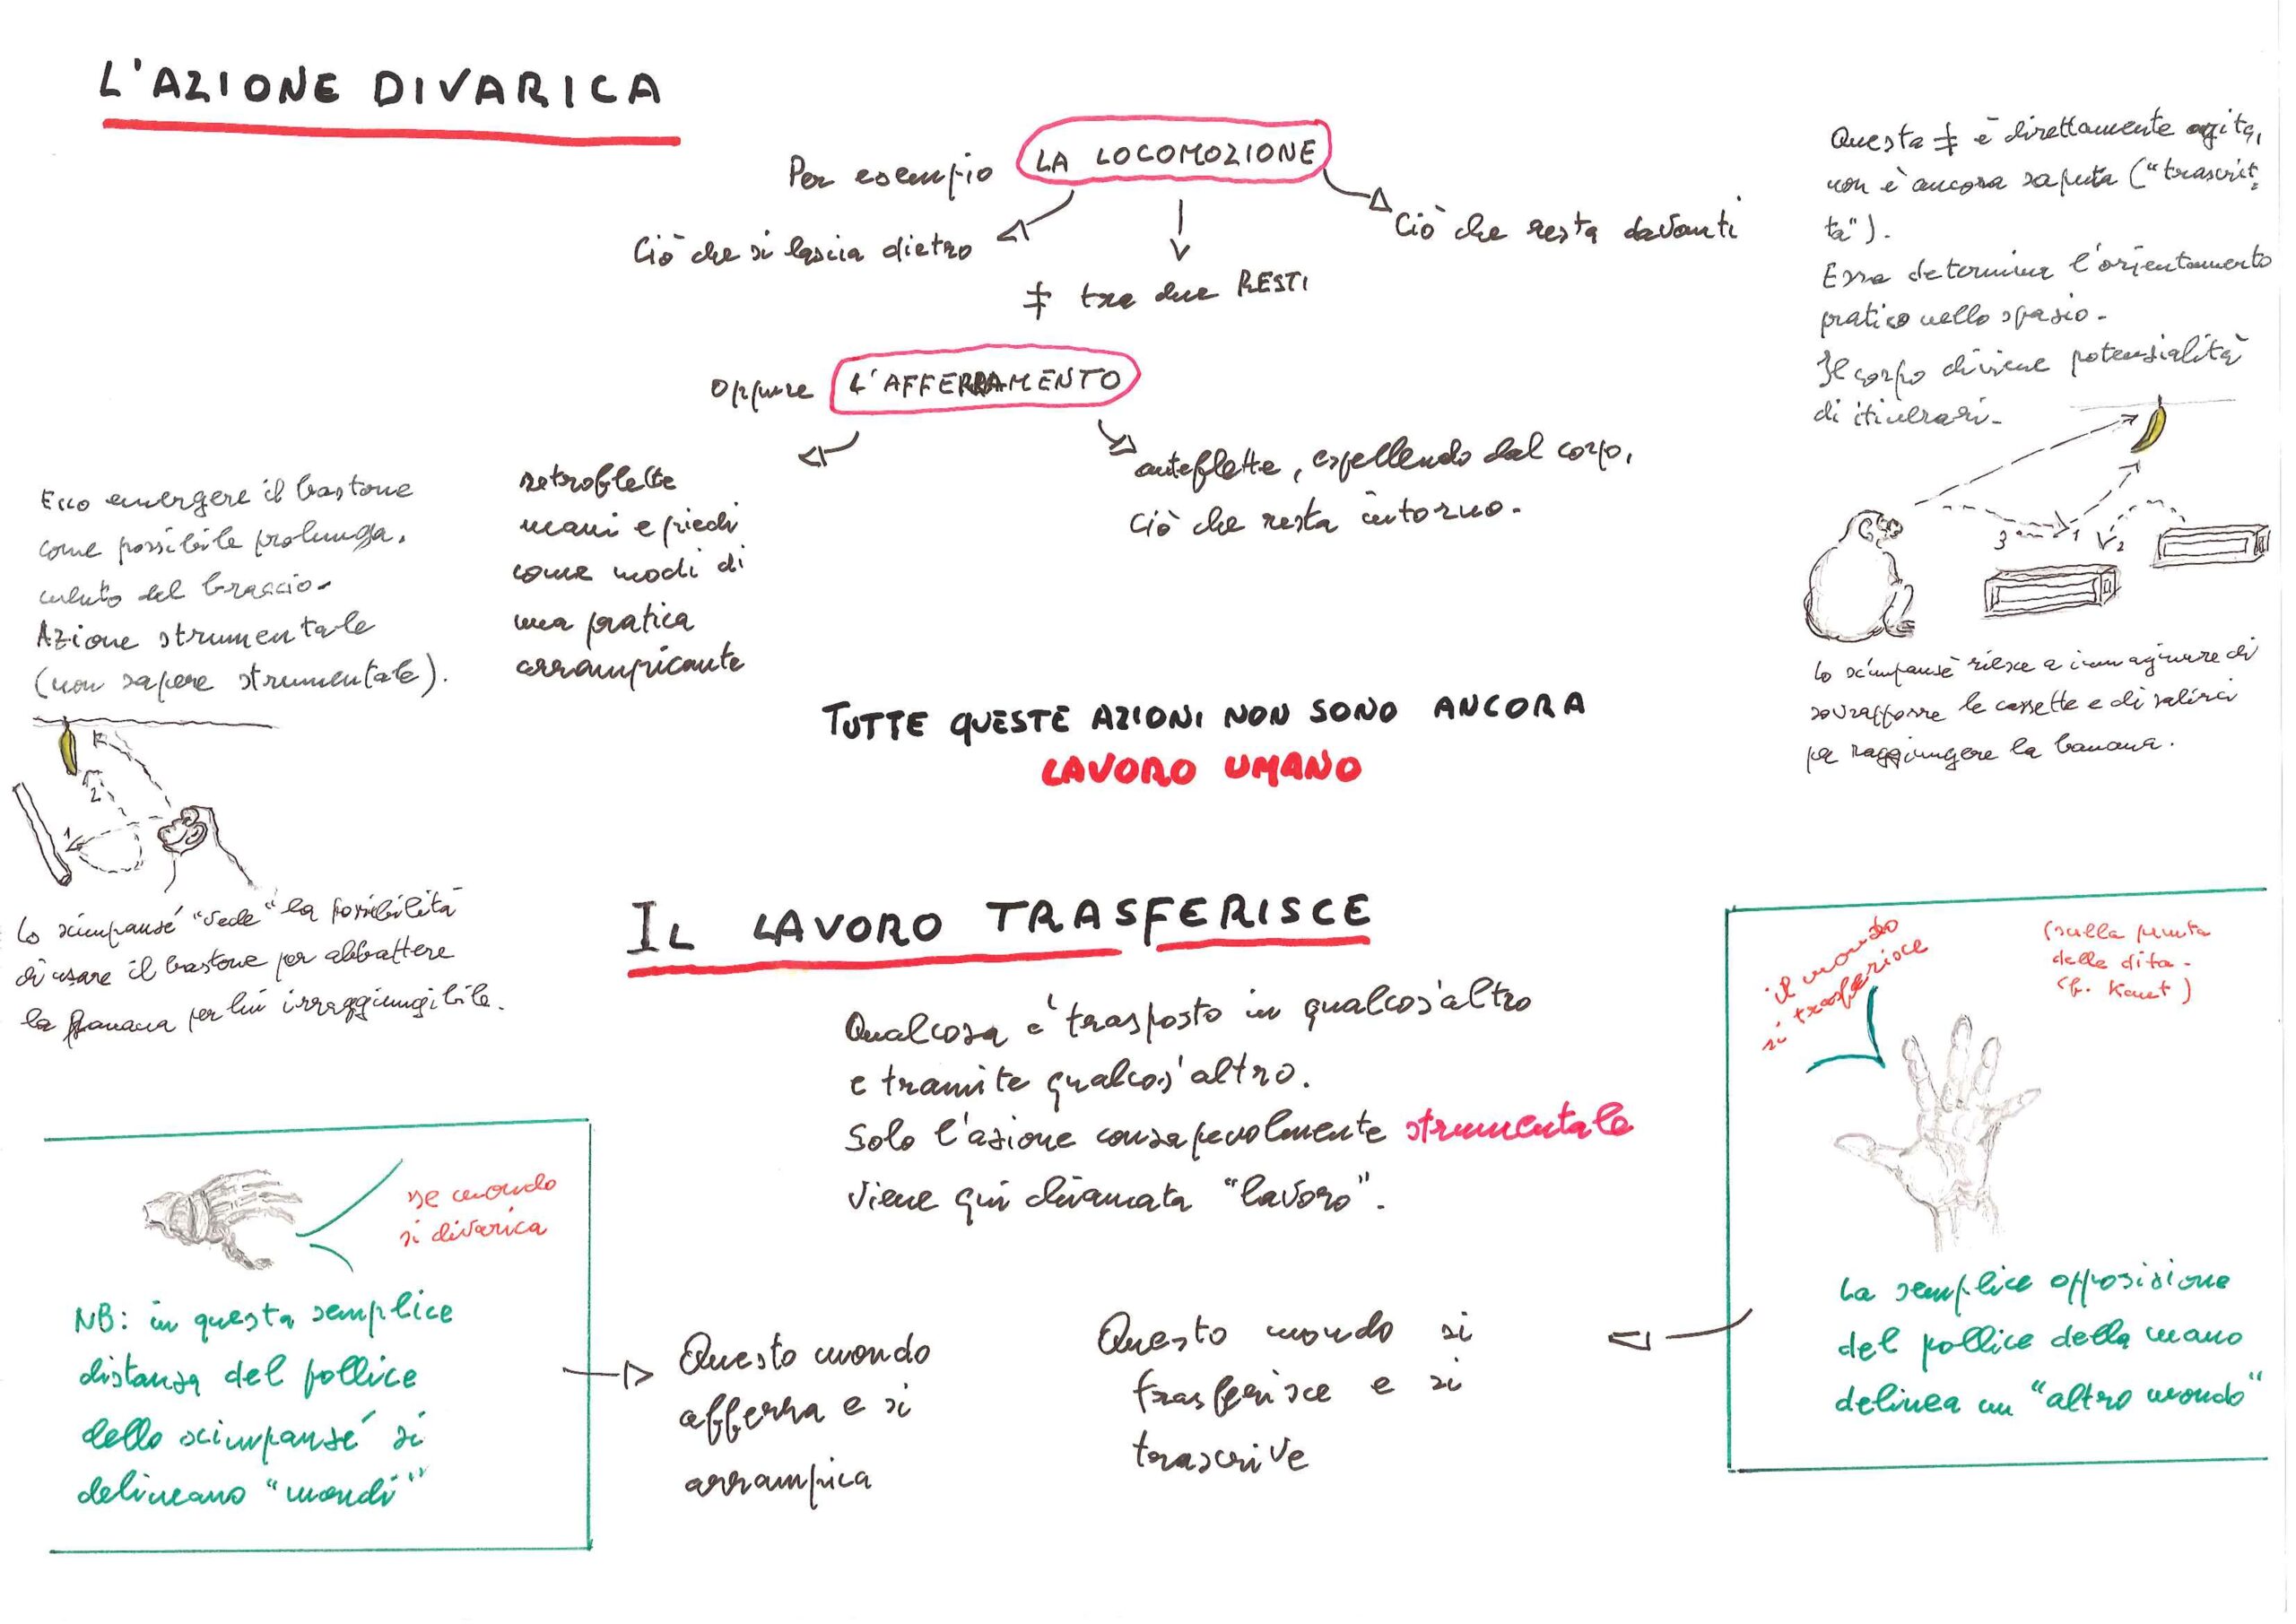 L'AZIONE DIVARICA
Per esempio LA LOCOMOZIONE
Ciò che si lascia dietro
Ciò che resta davanti
‡ tra due RESTI
Questa ‡ è direttamente agita,
non è ancora saputa ("trascrit-
ta").
Essa determina l'orientamento
pratico nello spazio.
Il corpo diviene potenzialità
di itinerari.
oppure L'AFFERRAMENTO
retroflette
mani e piedi
come modi di
una pratica
arrampicante
anteflette, espellendo dal corpo,
ciò che resta intorno.
Ecco emergere il bastone
come possibile prolunga-
mento del braccio.
Azione strumentale
(non sapere strumentale).
2
1
Lo scimpansé "vede" la possibilità
di usare il bastone per abbattere
la banana per lui irraggiungibile.
3
1
2
Lo scimpansé riesce a immaginare di
sovrapporre le cassette e di salirci
per raggiungere la banana.
TUTTE QUESTE AZIONI NON SONO ANCORA
LAVORO UMANO
IL LAVORO TRASFERISCE
Qualcosa è trasposto in qualcos'altro
e tramite qualcos'altro.
Solo l'azione consapevolmente strumentale
viene qui chiamata "lavoro".
se mondo
si divarica
NB: in questa semplice
distanza del pollice
dello scimpansé si
delineano "mondi"
Questo mondo
afferra e si
arrampica
Questo mondo si
trasferisce e si
trascrive
il mondo
si trasferisce
(sulla punta
delle dita.
Cfr. Kant)
La semplice opposizione
del pollice della mano
delinea un "altro mondo"